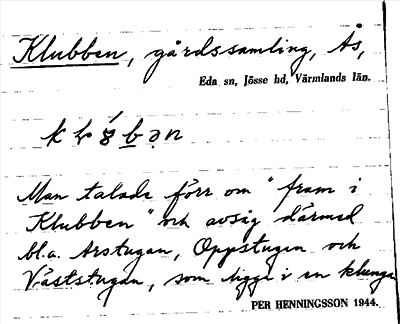 Klubben, gårdssamling, Ås,
Eda sn, Jösse hd, Värmlands län.
Man talade förr om "fram i
Klubben" och avsåg därmed
bl.a. Arstugan, Oppstugen och
Väststugan, som ligga i en klunga
PER HENNINGSSON 1944.